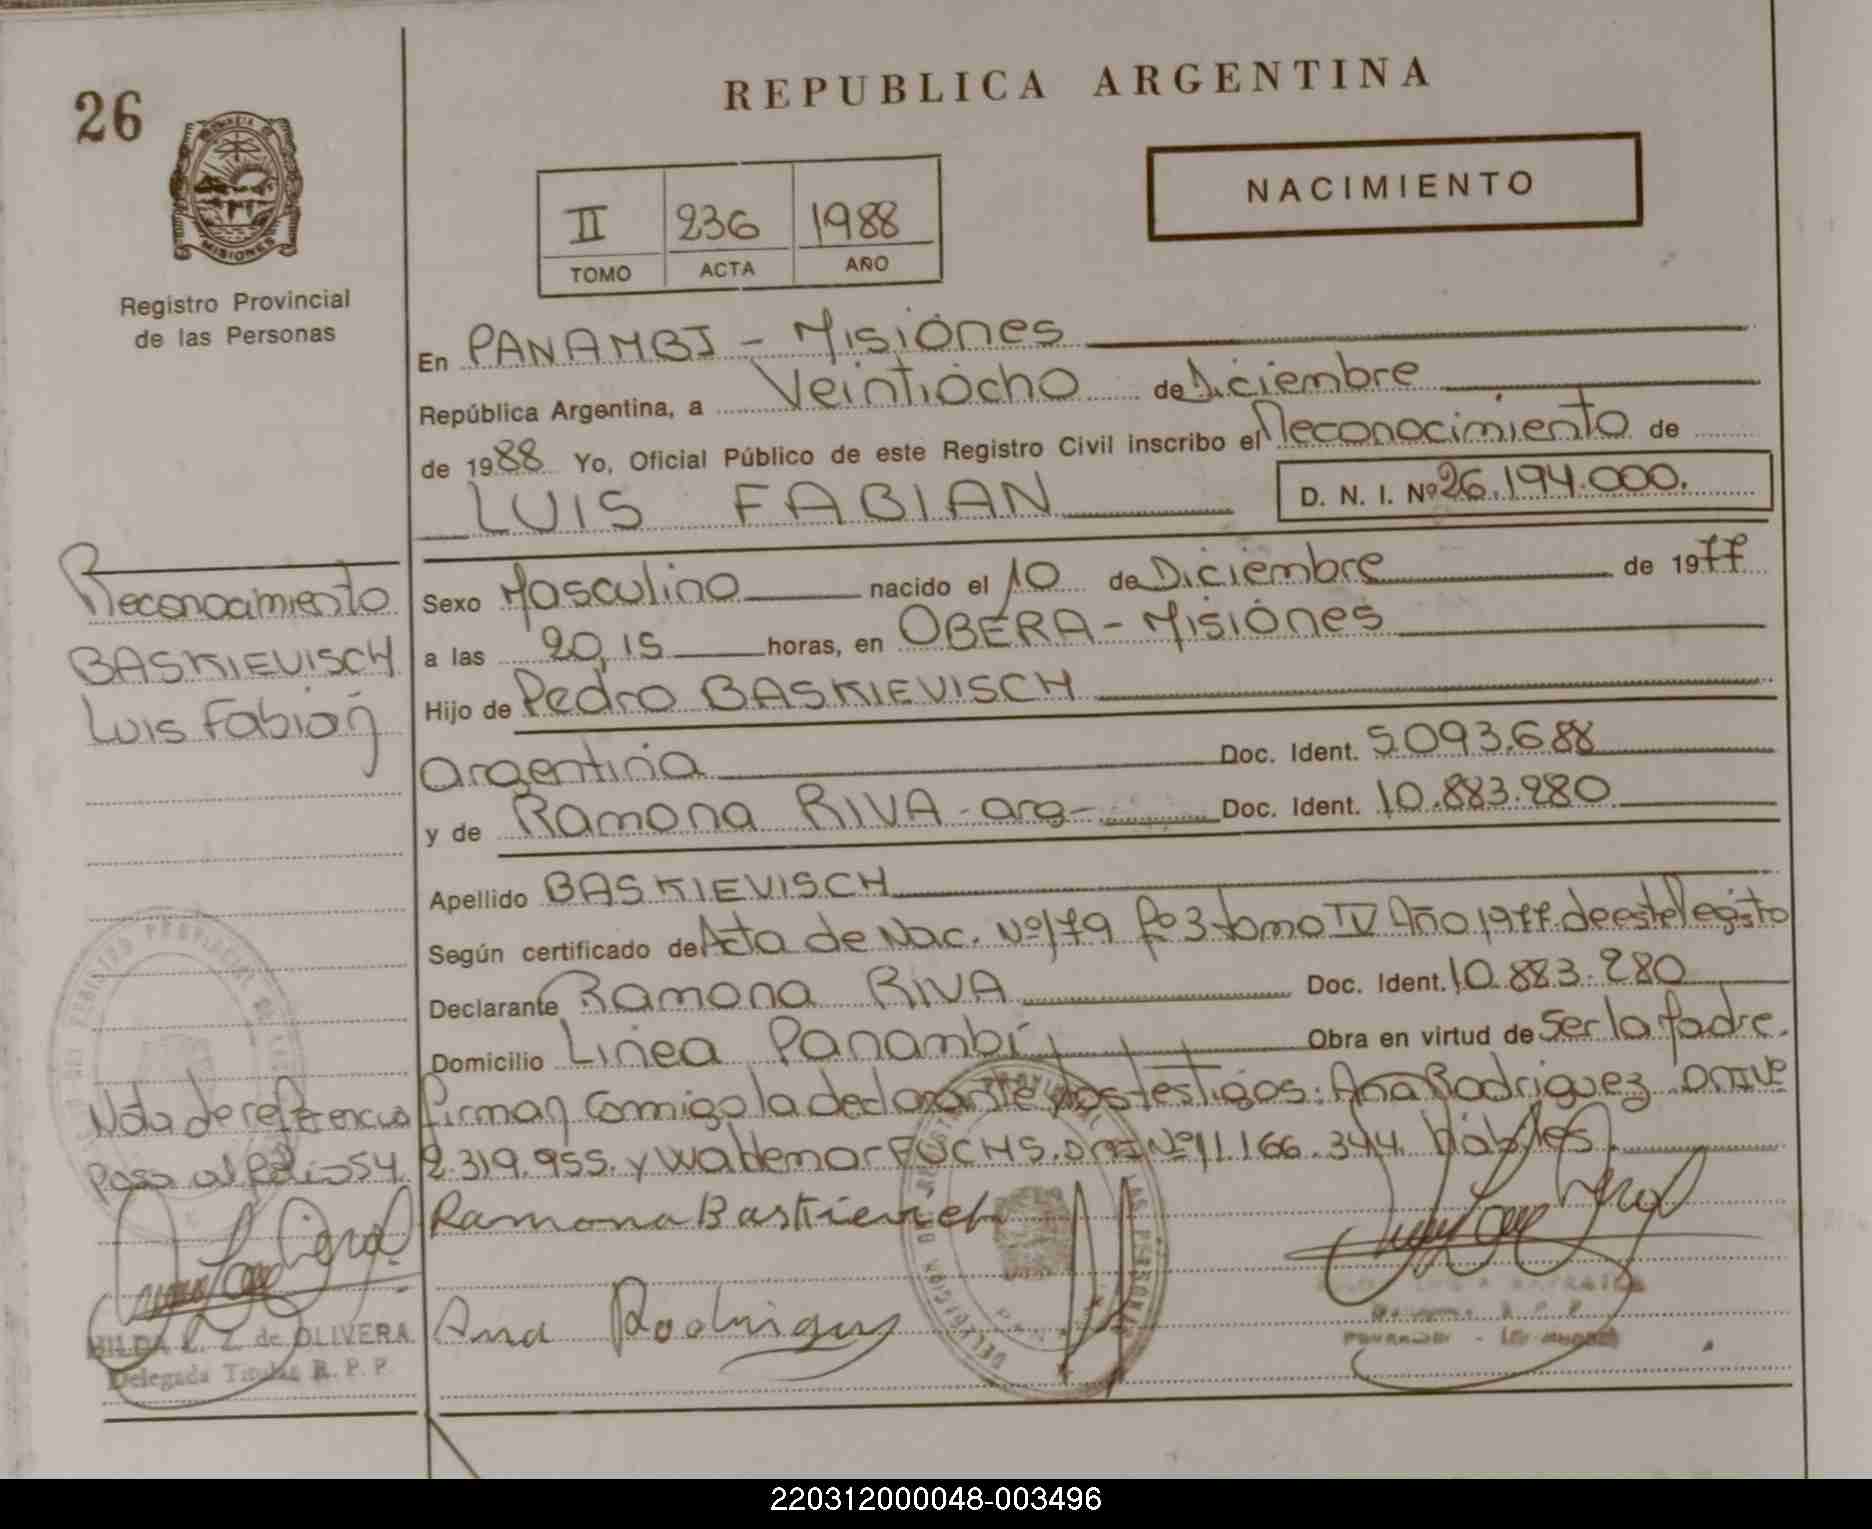 REPUBLICA ARGENTINA
26
NACIMIENTO
II 236 1988
TOMO ACTA AÑO
MISIONES
Registro Provincial
de las Personas
En PANAMBI - Misiones
República Argentina, a Veintiocho de Diciembre
de 1988 Yo, Oficial Público de este Registro Civil inscribo el Reconocimiento de
LUIS FABIAN D. N. I. Nº 26.194.000.
Reconocimiento
BASKIEVISCH
Luis Fabian
Sexo Masculino nacido el 10 de Diciembre de 1977
a las 20,15 horas, en OBERA - Misiones
Hijo de Pedro BASKIEVISCH
argentina Doc. Ident. 5.093.688
y de Ramona RIVA - arg- Doc. Ident. 10.883.280
Apellido BASKIEVISCH
Según certificado de Acta de Nac. Nº 179 fº 3 tomo IV Año 1977. de este Registro
Declarante Ramona RIVA Doc. Ident. 10.883.280
Domicilio Linea Panambi Obra en virtud de Ser la Madre.
Nota de referencia
pasa al folio 54.
firman conmigo la declarante y los testigos: Ana Rodriguez DNI Nº
2.319.955. y Waldemar FUCHS. DNI Nº 11.166.344. hábiles.
Ramona Baskievich
Ana Rodriguez
HILDA L. Z. de OLIVERA
Delegada Titular R. P. P.
220312000048-003496